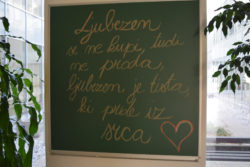 Ljubezen
se ne kupi, tudi
ne proda,
ljubezen je tista,
ki pride iz
srca